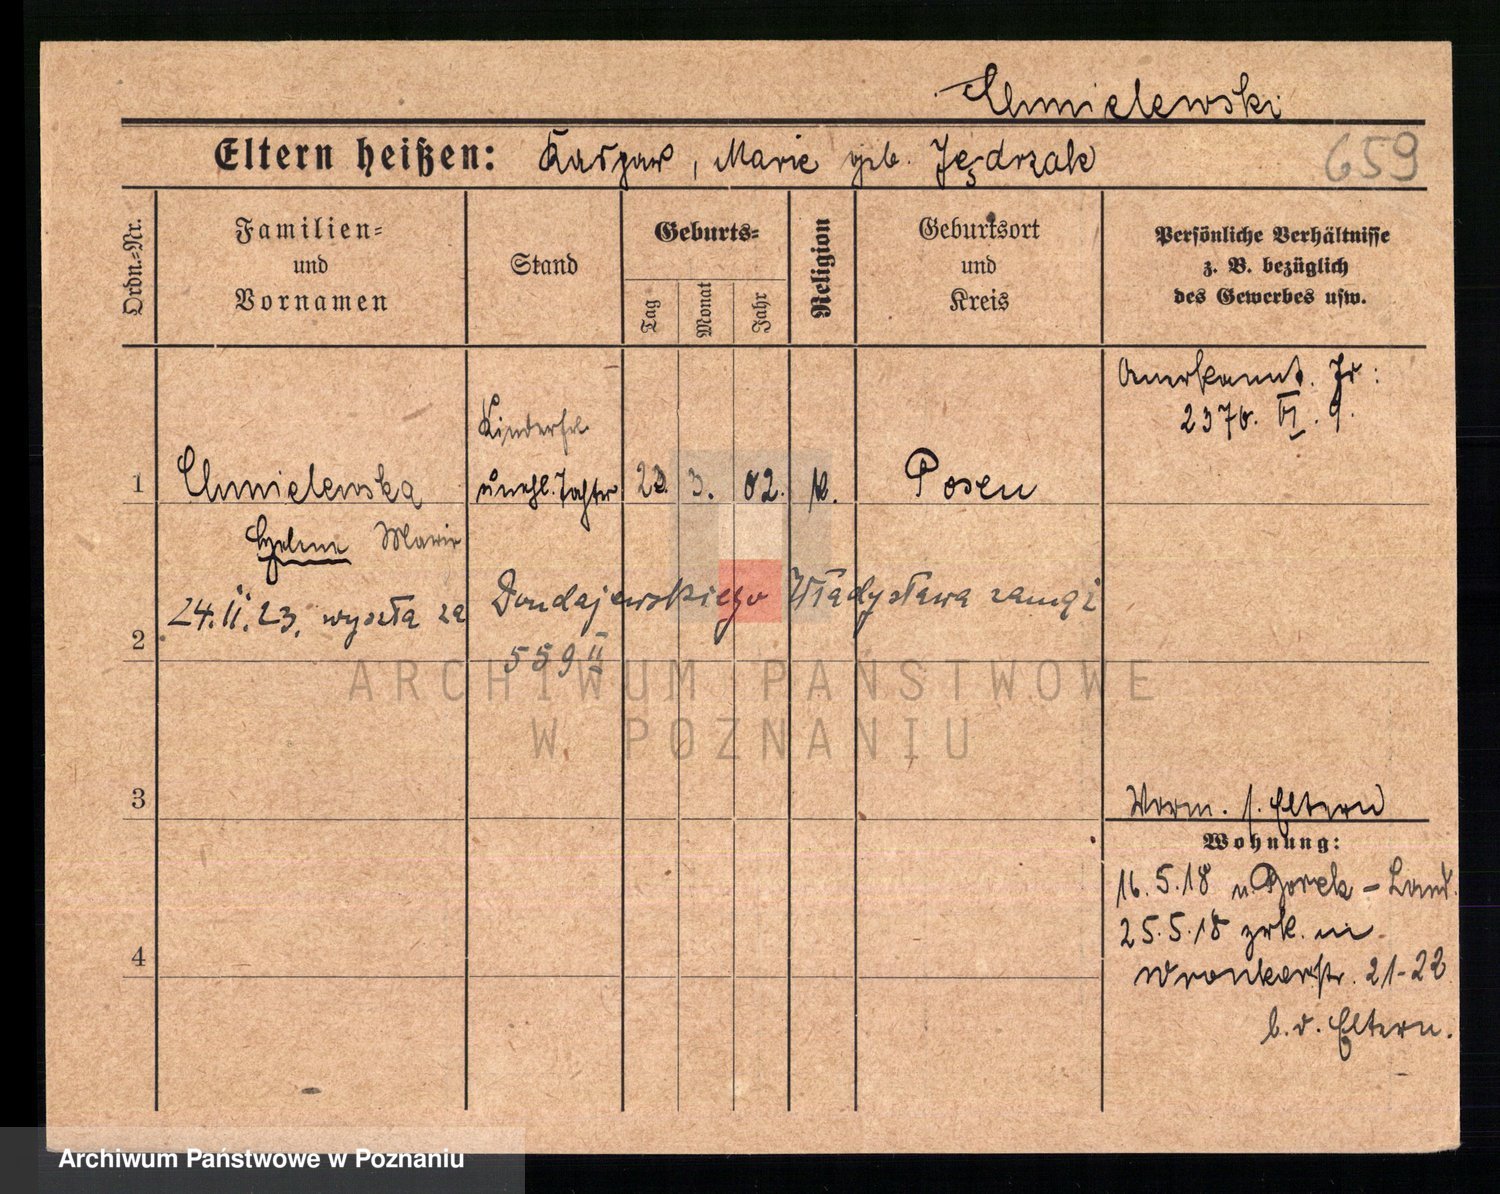 Chmielewski
Eltern heißen: Kaspar, Marie geb. Jędrzak
659
Ordn.-Nr.
Familien-
und
Vornamen
Stand
Geburts-
Tag
Monat
Jahr
Religion
Geburtsort
und
Kreis
Persönliche Verhältnisse
z. B. bezüglich
des Gewerbes usw.
Anerkannt. Jr:
2376. VI. 9.
1
Chmielewska
Kinderfrl.
unehl. Tochter
23. 3. 02.
k.
Posen
Helene Marie
2
24.II.23. wyszła za Dondajewskiego Władysława zamąż
559 II
ARCHIWUM PAŃSTWOWE
W POZNANIU
3
Worm. s. Eltern
Wohnung:
16.5.18 n. Borek - Land.
25.5.18 zrk. in
4
Wronkerstr. 21-22
b. d. Eltern.
Archiwum Państwowe w Poznaniu